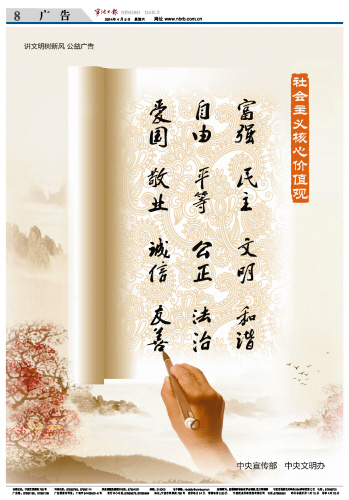 8 广告 宁波日报 NINGBO DAILY
网址 www.nbrb.com.cn
讲文明树新风 公益广告
社会主义核心价值观
富强 民主 文明 和谐
自由 平等 公正 法治
爱国 敬业 诚信 友善
中央宣传部 中央文明办